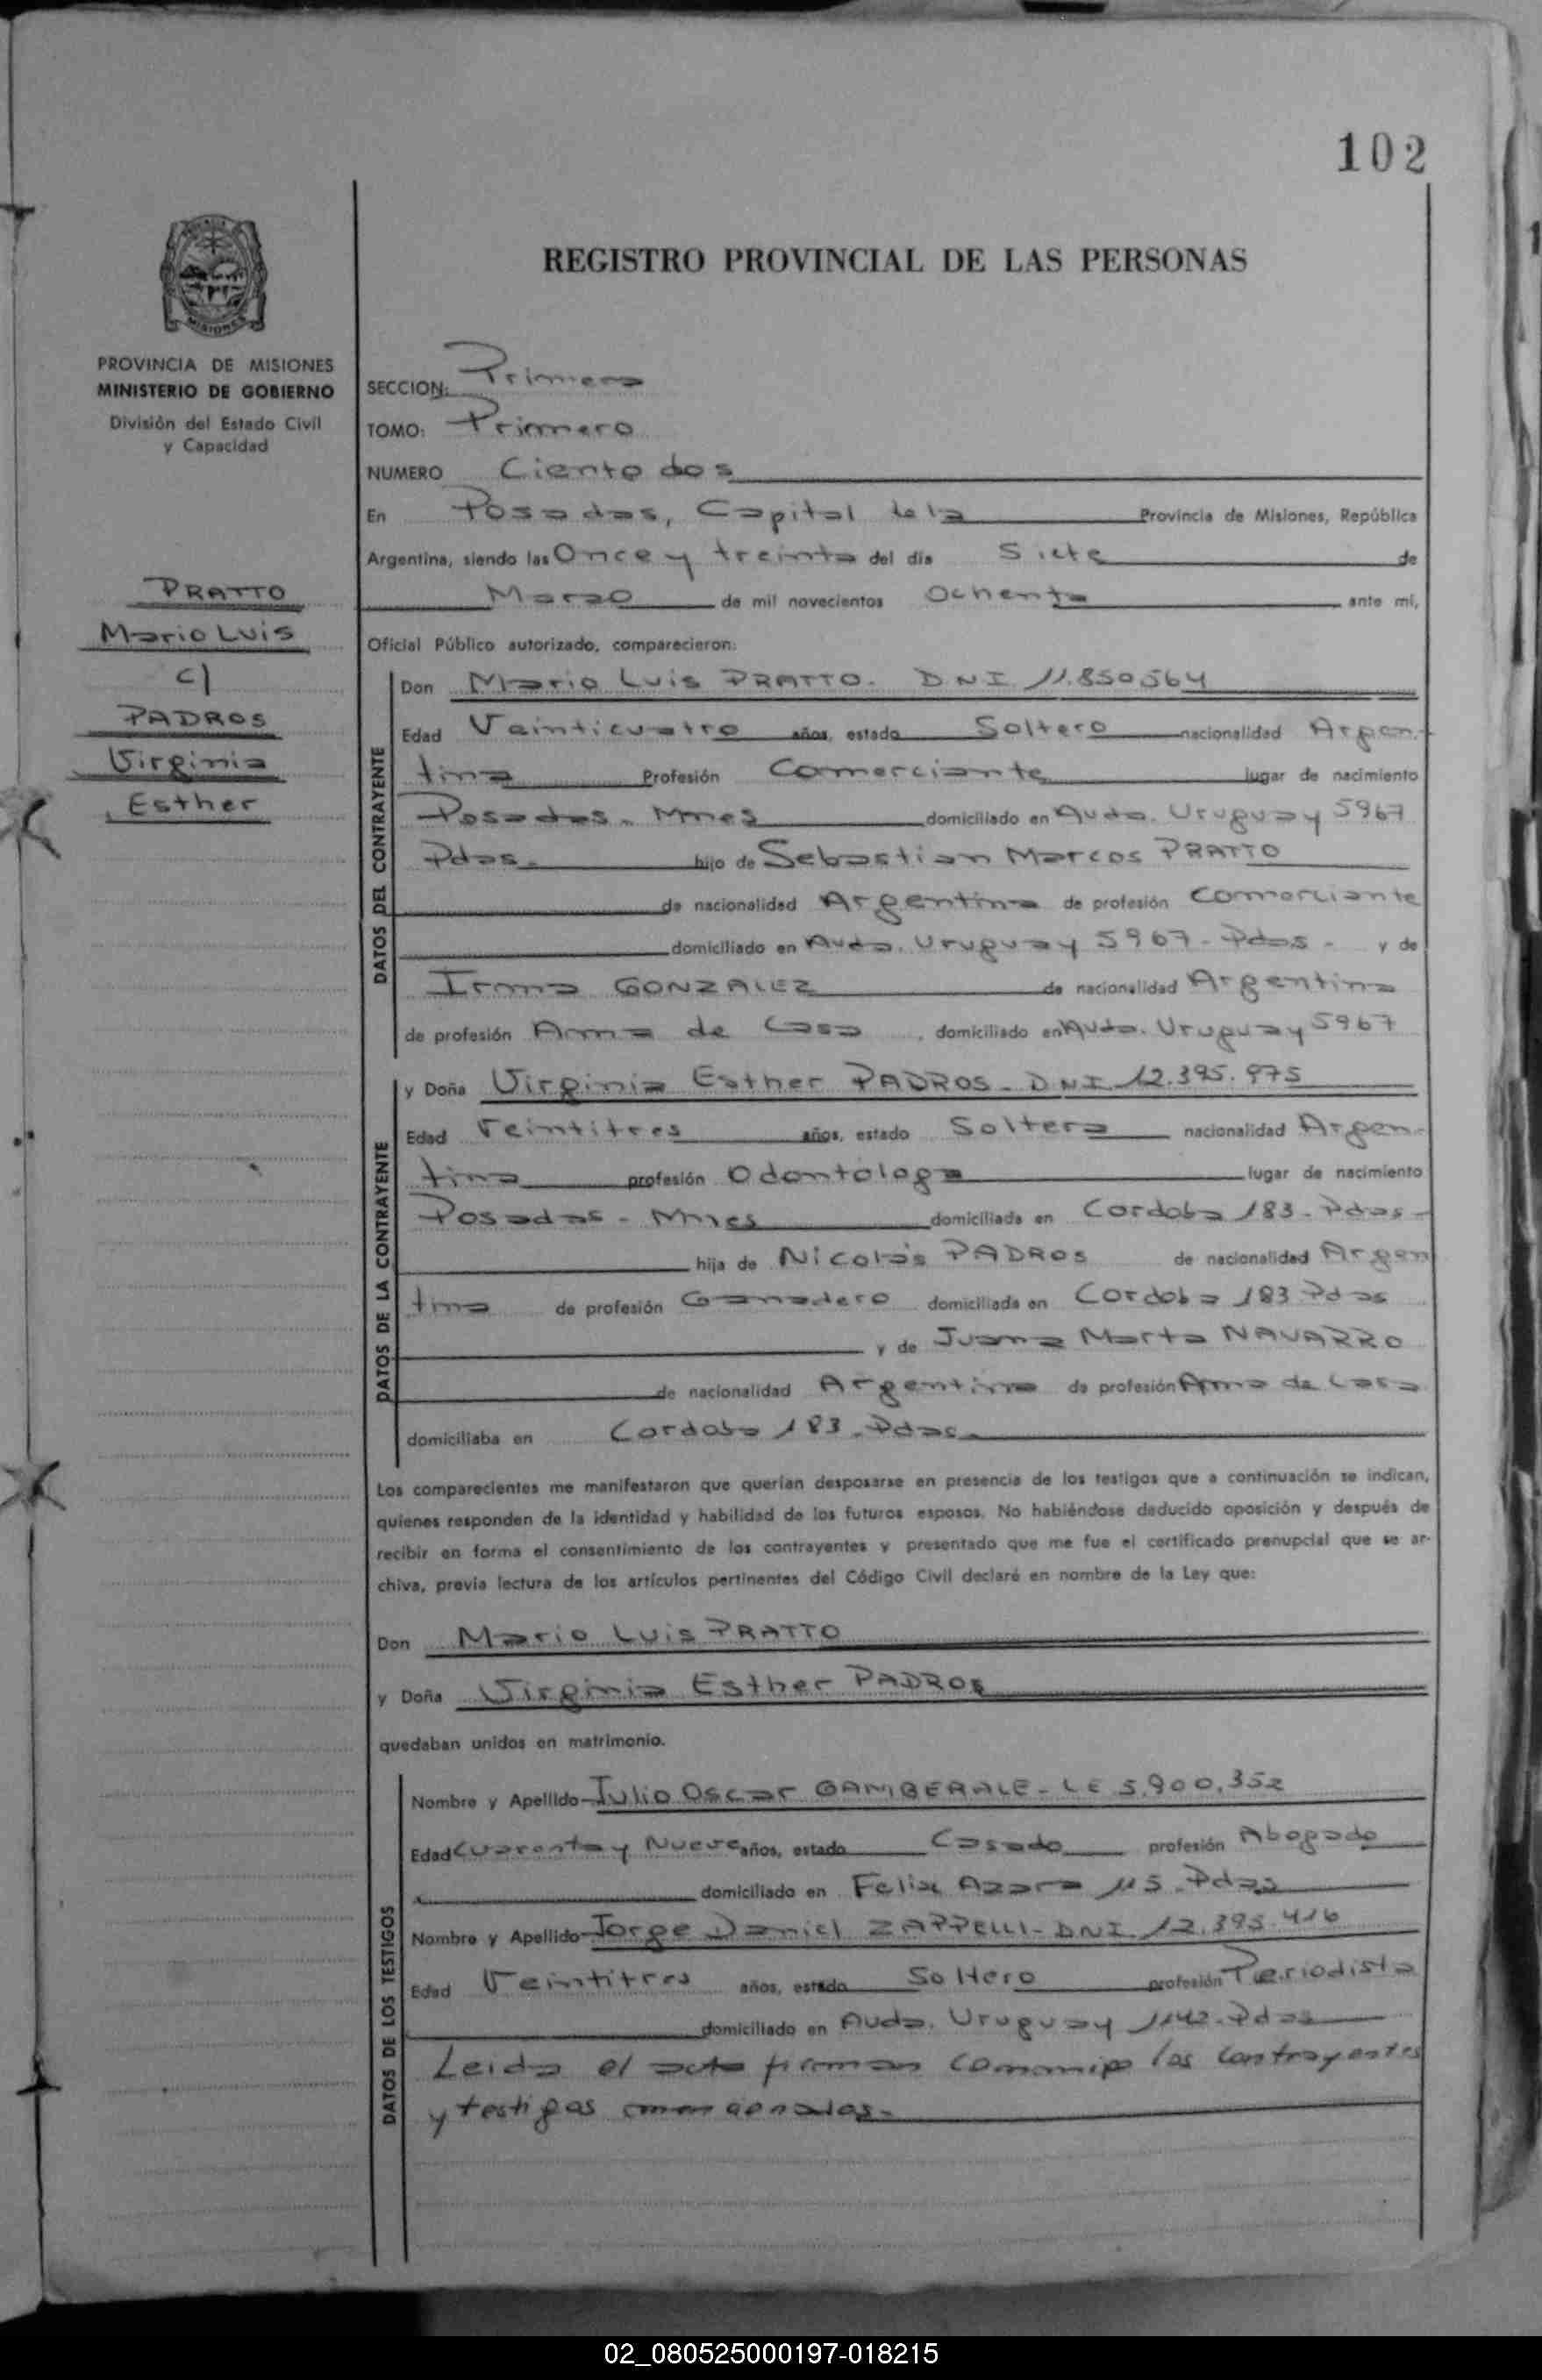 102
REGISTRO PROVINCIAL DE LAS PERSONAS
MISIONES
PROVINCIA DE MISIONES
MINISTERIO DE GOBIERNO
División del Estado Civil
y Capacidad
PRATTO
Mario Luis
c/
PADROS
Virginia
Esther
SECCION: Primera
TOMO: Primero
NUMERO Ciento dos
En Posadas, Capital de la Provincia de Misiones, República
Argentina, siendo las Once y treinta del día Siete de
Marzo de mil novecientos Ochenta ante mí,
Oficial Público autorizado, comparecieron:
DATOS DEL CONTRAYENTE
Don Mario Luis PRATTO. DNI 11.850564
Edad Veinticuatro años, estado Soltero nacionalidad Argen-
tina Profesión Comerciante lugar de nacimiento
Posadas. Mnes domiciliado en Avda. Uruguay 5967
Pdas. hijo de Sebastian Marcos PRATTO
de nacionalidad Argentina de profesión Comerciante
domiciliado en Avda. Uruguay 5967 - Pdas - y de
Irma GONZALEZ de nacionalidad Argentina
de profesión Ama de Casa, domiciliado en Avda. Uruguay 5967
DATOS DE LA CONTRAYENTE
y Doña Virginia Esther PADROS - DNI 12.395.975
Edad Veintitres años, estado Soltera nacionalidad Argen-
tina profesión Odontologa lugar de nacimiento
Posadas - Mnes domiciliada en Cordoba 183 - Pdas -
hija de Nicolás PADROS de nacionalidad Argen
tina de profesión Ganadero domiciliada en Cordoba 183 Pdas
y de Juana Marta NAVARRO
de nacionalidad Argentina de profesión Ama de Casa
domiciliaba en Cordoba 183 - Pdas -
Los comparecientes me manifestaron que querían desposarse en presencia de los testigos que a continuación se indican,
quienes responden de la identidad y habilidad de los futuros esposos. No habiéndose deducido oposición y después de
recibir en forma el consentimiento de los contrayentes y presentado que me fue el certificado prenupcial que se ar-
chiva, previa lectura de los artículos pertinentes del Código Civil declaré en nombre de la Ley que:
Don Mario Luis PRATTO
y Doña Virginia Esther PADROS
quedaban unidos en matrimonio.
DATOS DE LOS TESTIGOS
Nombre y Apellido Julio Oscar GAMBERALE - LE 5.900.352
Edad Cuarenta y Nueve años, estado Casado profesión Abogado
domiciliado en Felix Azara 115 - Pdas
Nombre y Apellido Jorge Daniel ZAPPELLI - DNI 12.395.416
Edad Veintitres años, estado Soltero profesión Periodista
domiciliado en Avda. Uruguay 1142 - Pdas
Leida el acta firman conmigo los contrayentes
y testigos mencionados -
02_080525000197-018215